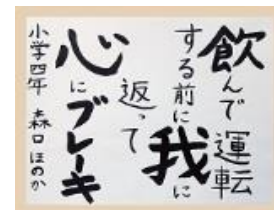 飲んで運転
する前に
我に
返って
心にブレーキ
小学四年 森口ほのか